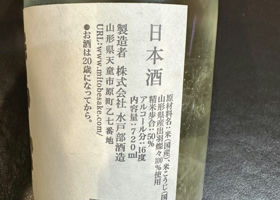 日本酒
原材料名:米(国産)、米こうじ(国
山形県産出羽燦々100%使用
精米歩合:50%
アルコール分:16度
内容量:720ml
製造者 株式会社 水戸部酒造
山形県天童市原町乙七番地
URL:www.mitobesake.com/
●お酒は20歳になってから。